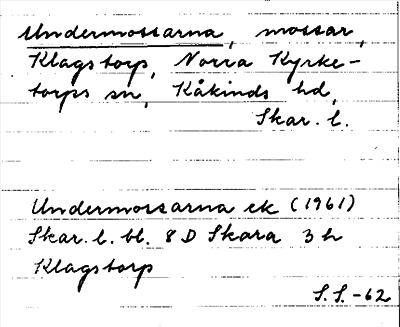 Undermossarna, mossar,
Klagstorp, Norra Kyrke-
torps sn, Kåkinds hd,
Skar. l.
Undermossarna ek (1961)
Skar. l. bl. 8 D Skara 3 h
Klagstorp
S.S.-62